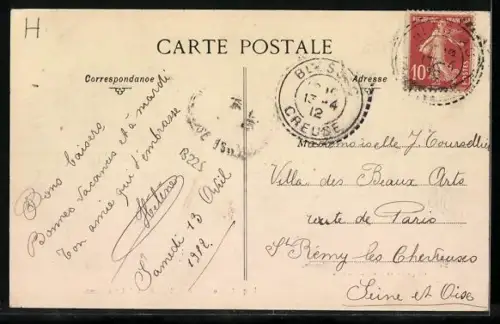 H
CARTE POSTALE
Correspondance
Adresse
10
CREUSE
13 -4
12
Bons baisers
Bonnes vacances et à mardi
Ton amie qui t'embrasse
Hélène
Samedi 13 Avril
1912
18225
Mademoiselle J. Tourseiller
Villa des Beaux Arts
route de Paris
St Rémy les Chevreuses
Seine et Oise